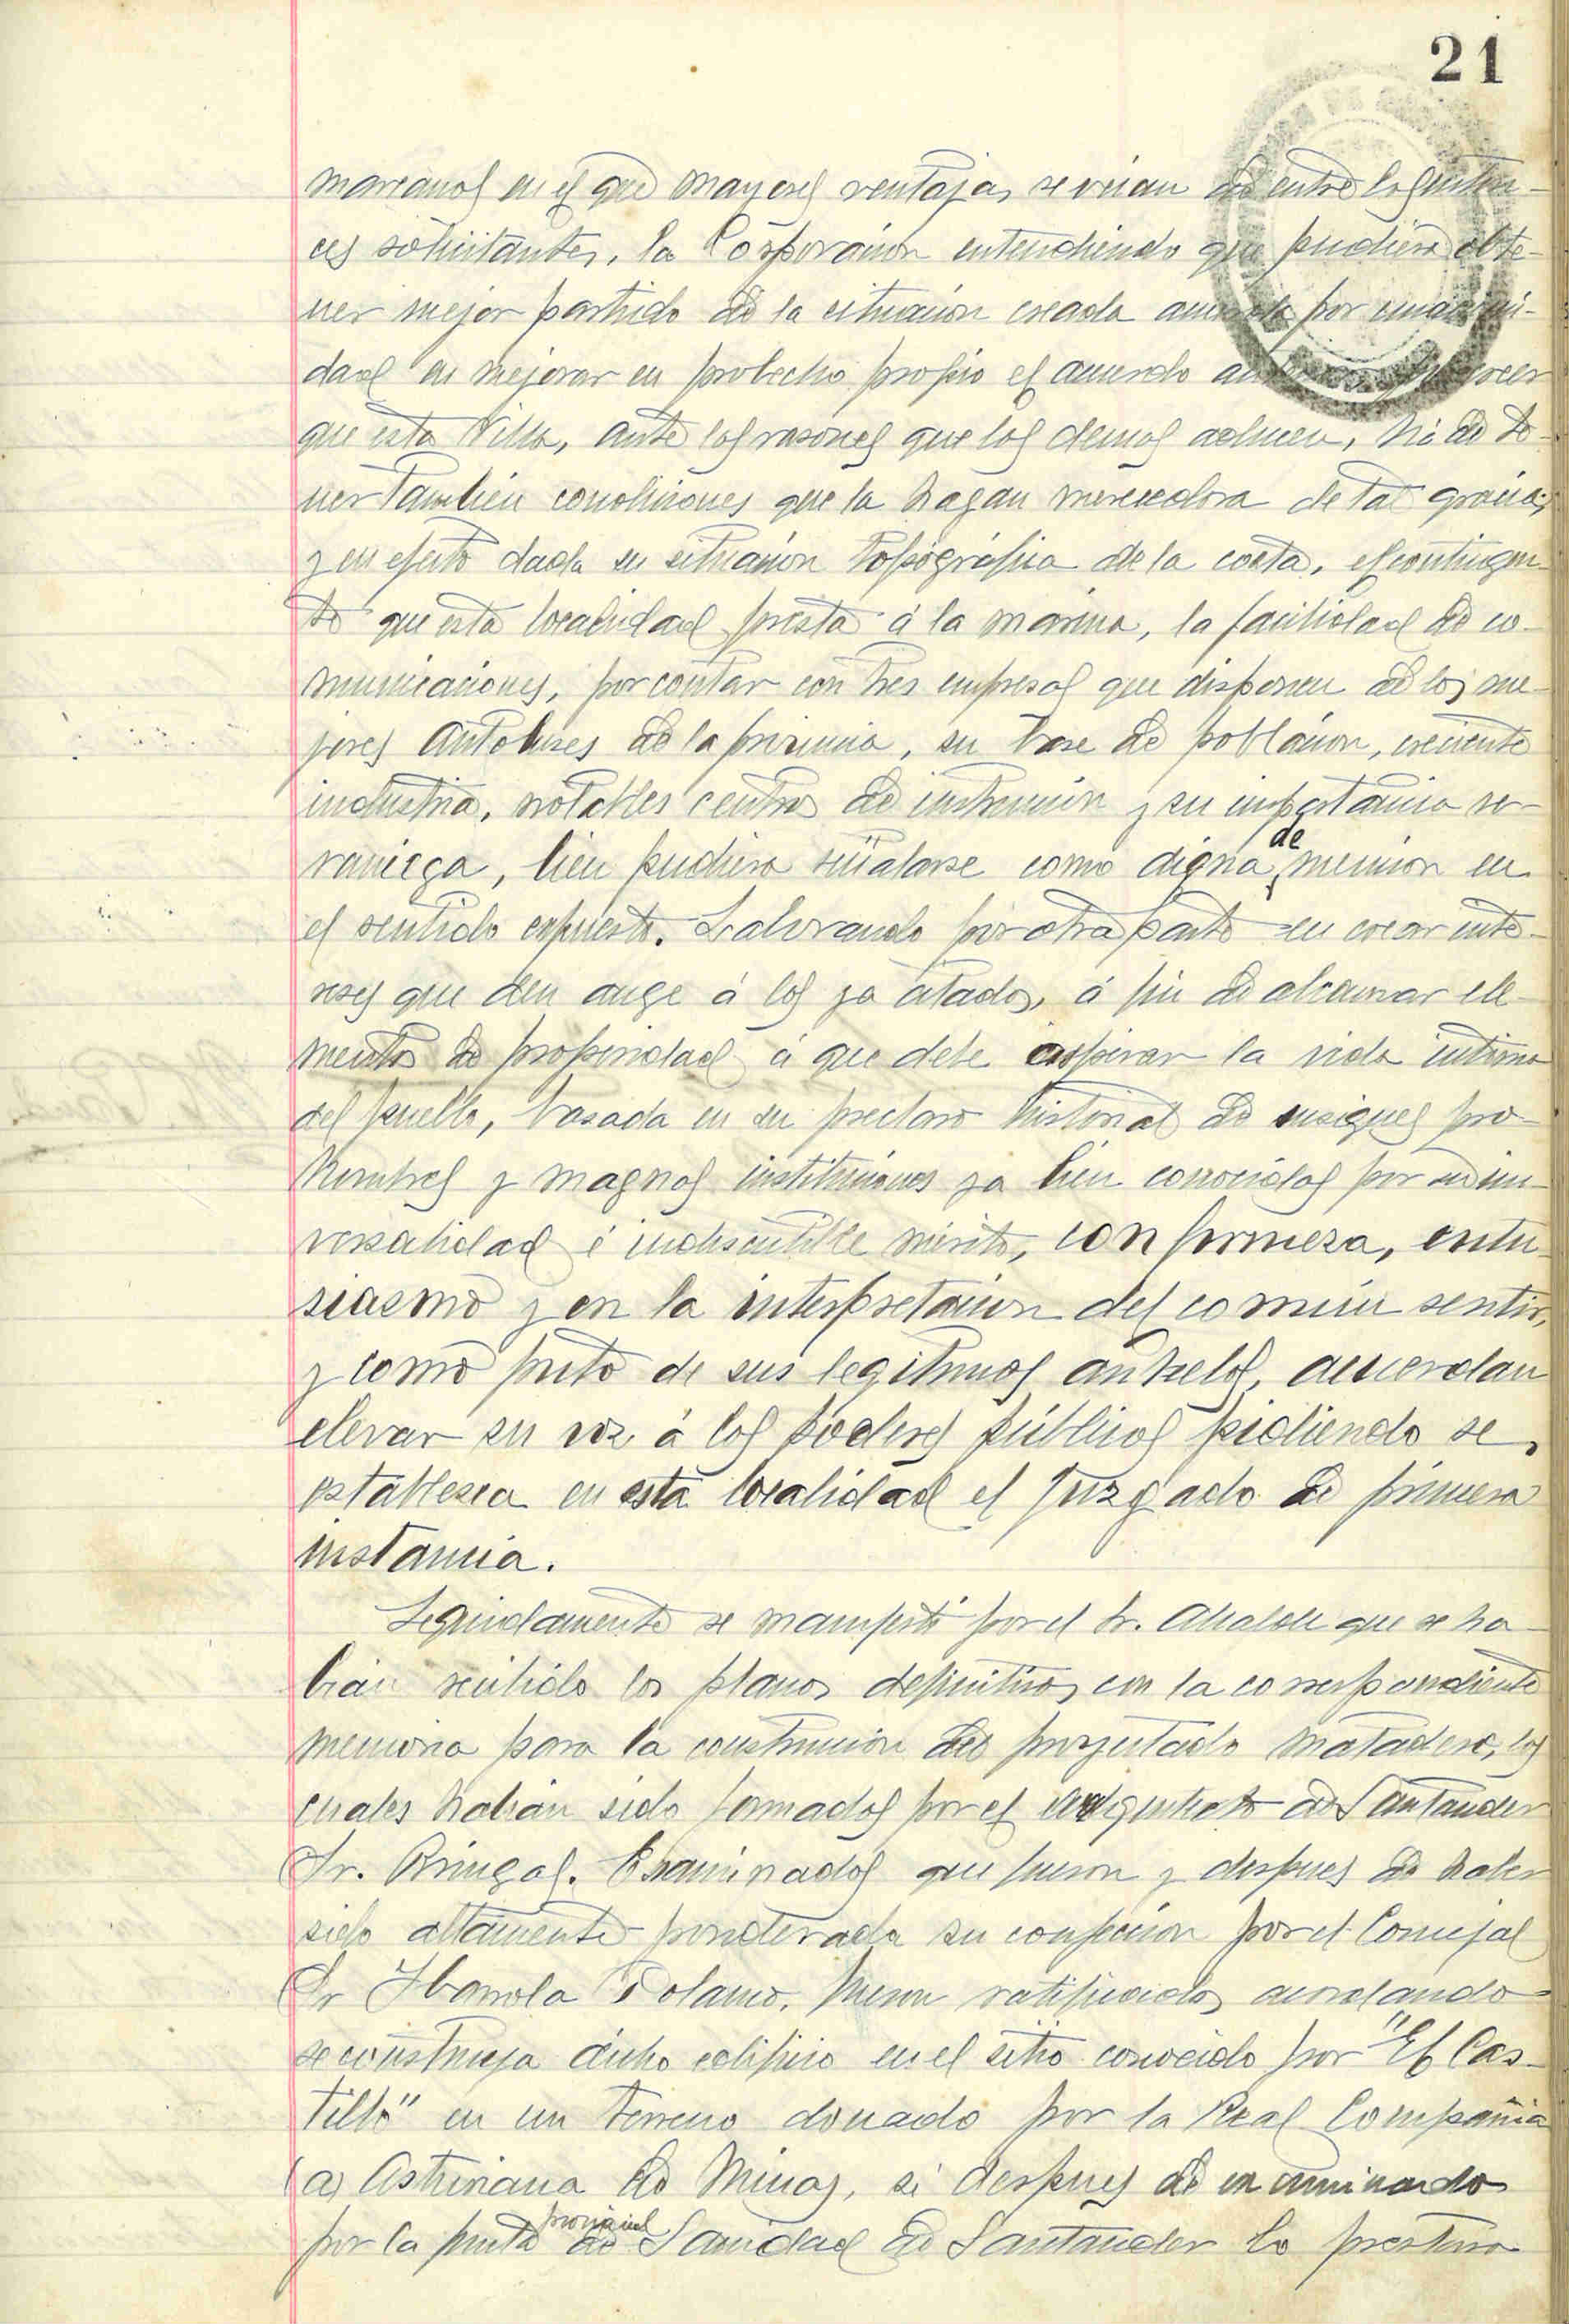 21
marcanos en el que mayores ventajas se vieran de entre los enton-
ces solicitantes, la Corporación entendiendo que pudiera obte-
ner mejor partido de la situación creada acuerda por unanimi-
dad en mejorar en probecho propio el acuerdo anterior creer
que esta Villa, ante las rasones que los demas aducen, ha de te-
ner tambien condiciones que la hagan merecedora de tal gracia;
y en efecto dada su situación topográfica de la costa, el contingen-
te que esta localidad presta á la marina, la facilidad de co-
municaciones, por contar con tres empresas que disponen de los me-
jores autobuses de la provincia, su base de población, creciente
industria, notables centros de instrucción y su importancia ve-
raniega, bien pudiera señalarse como digna de mencion en
el sentido expuesto. Laborando por otra parte en crear inte-
reses que den auge á los ya citados, á fin de alcanzar ele-
mentos de prosperidad á que debe aspirar la vida intima
del pueblo, basada en su preclaro historial de insignes pro-
hombres y magnas instituciones ya bien conocidas por su uni-
versalidad é indiscutible mérito, con firmeza, entu-
siasmo y en la interpretacion del común sentir,
y como fruto de sus legitimos anhelos, acuerdan
elevar su voz á los poderes públicos pidiendo se
establesca en esta localidad el Juzgado de primera
instancia.
Seguidamente se manifestó por el Sr. Alcalde que se ha-
bían recibido los planos definitivos con la correspondiente
memoria para la construcción del proyectado matadero, los
cuales habian sido formados por el arquitecto de Santander
Sr. Bringas. Examinados que fueron y despues de haber
sido altamente ponderada su confección por el Concejal
Sr Ibarrola Solano, fueron ratificados acordando
se construya dicho edificio en el sitio conocido por "El Cas-
tillo" en un terreno donado por la Real Compañia
(a) Asturiana de Minas, si despues de examinado
por la Junta provincial de Sanidad de Santander lo